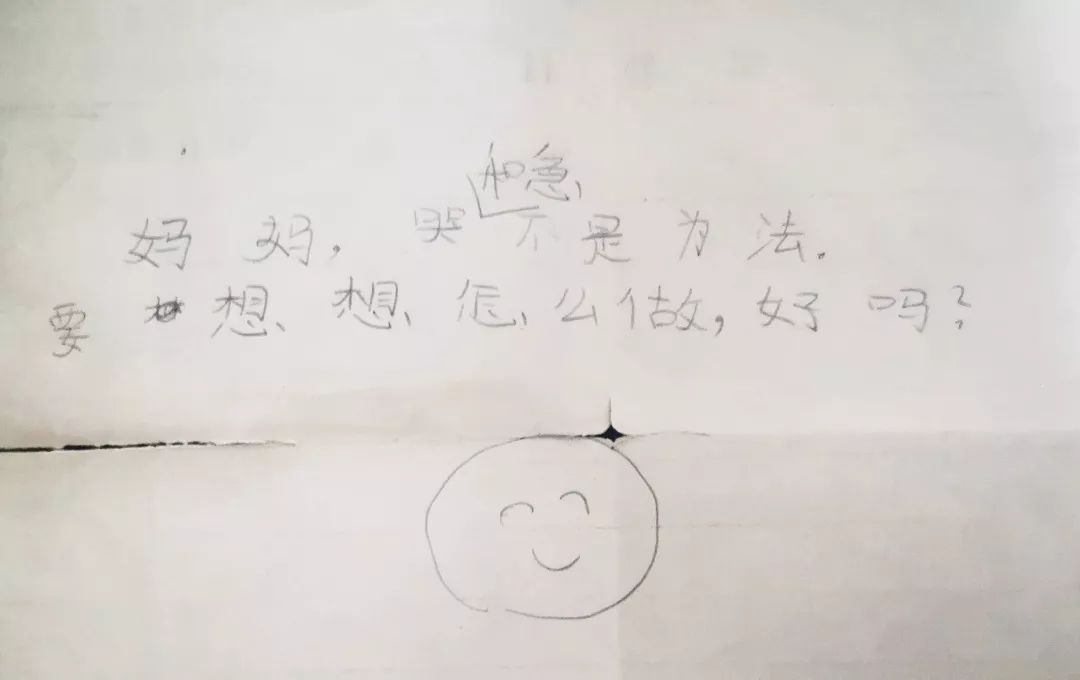 妈妈,哭和急不是为法.
要想想怎么做,好吗?